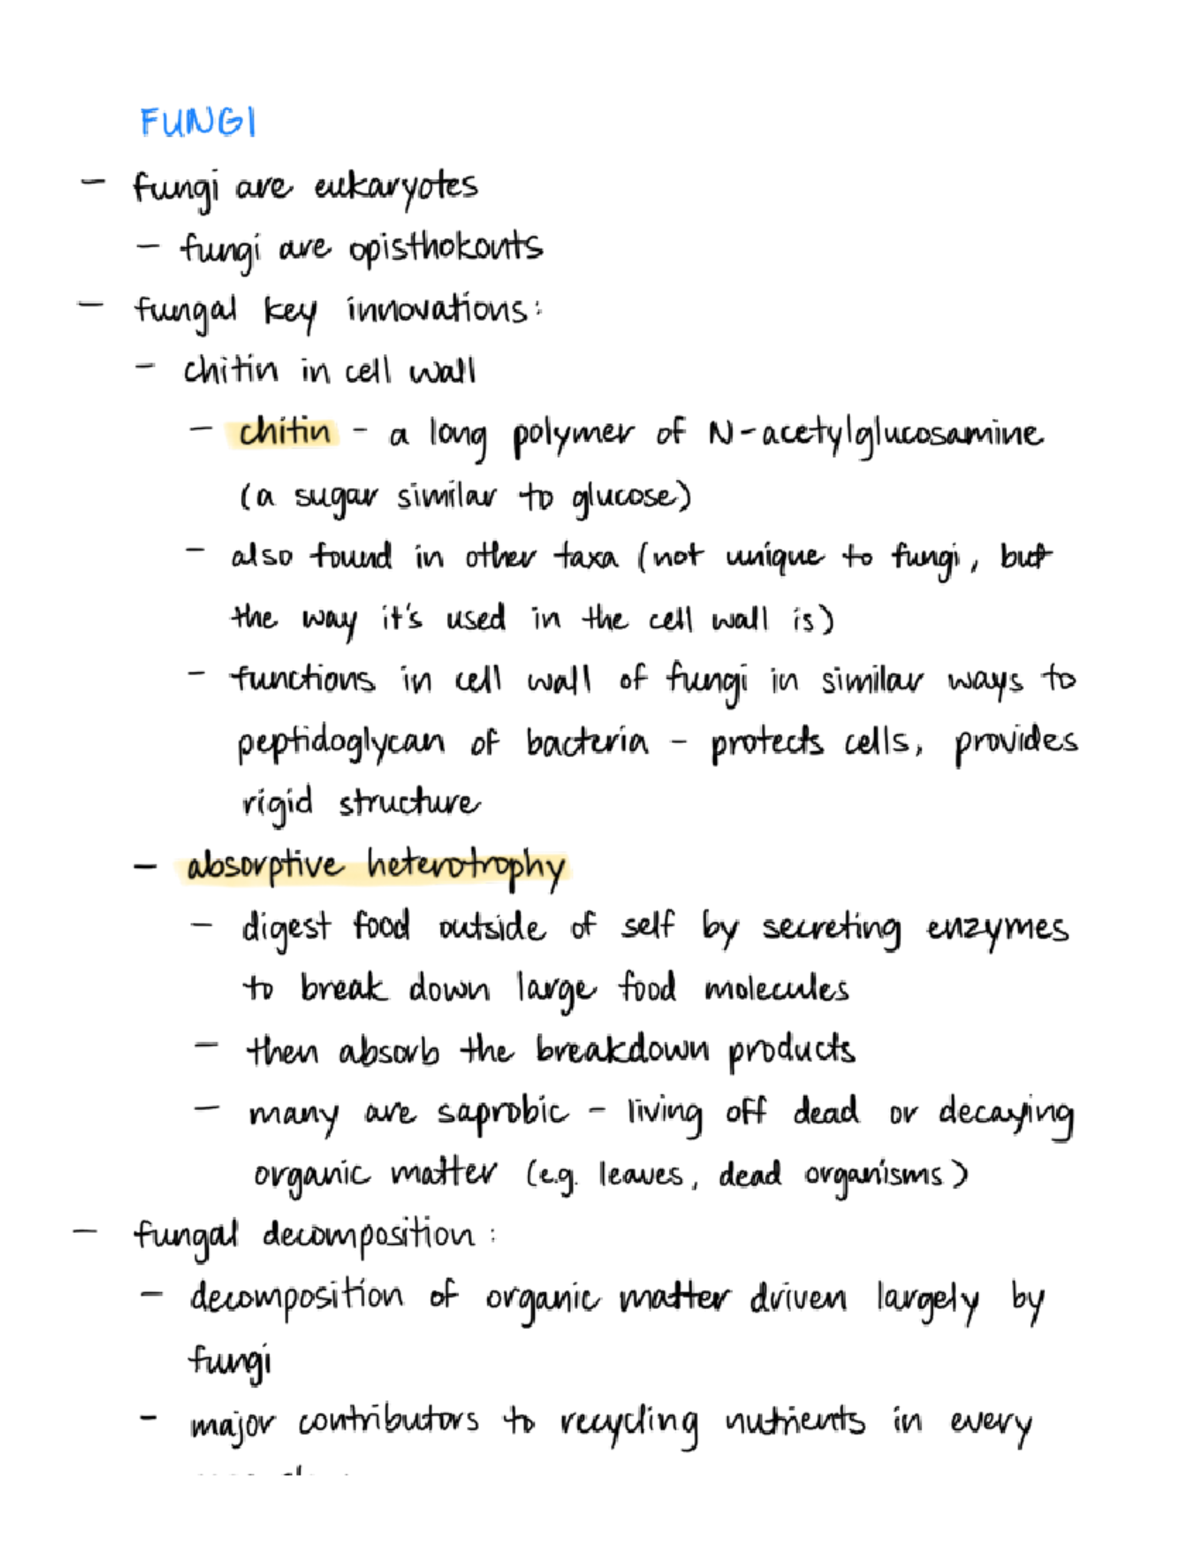 FUNGI
- fungi are eukaryotes
- fungi are opisthokonts
- fungal key innovations:
- chitin in cell wall
- chitin - a long polymer of N-acetylglucosamine
(a sugar similar to glucose)
- also found in other taxa (not unique to fungi, but
the way it's used in the cell wall is)
- functions in cell wall of fungi in similar ways to
peptidoglycan of bacteria - protects cells, provides
rigid structure
- absorptive heterotrophy
- digest food outside of self by secreting enzymes
to break down large food molecules
- then absorb the breakdown products
- many are saprobic - living off dead or decaying
organic matter (e.g. leaves, dead organisms)
- fungal decomposition:
- decomposition of organic matter driven largely by
fungi
- major contributors to recycling nutrients in every